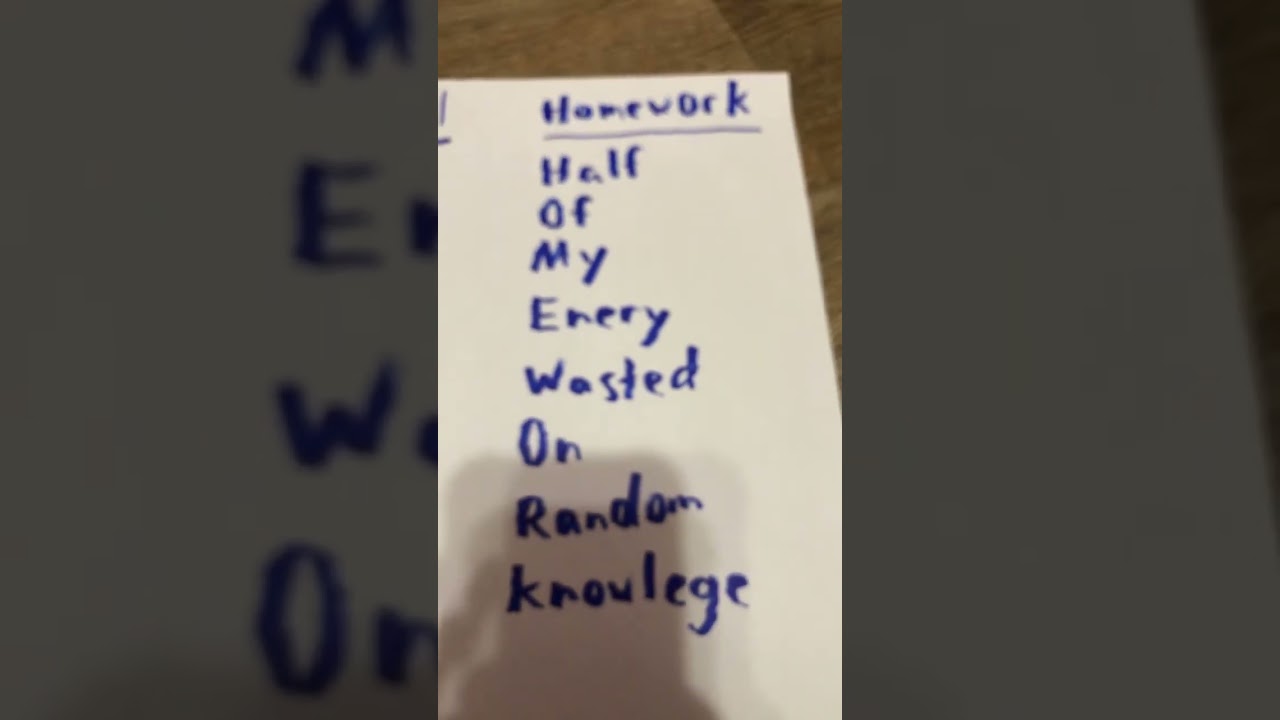 Homework
Half
Of
My
Enery
Wasted
On
Random
knowlege